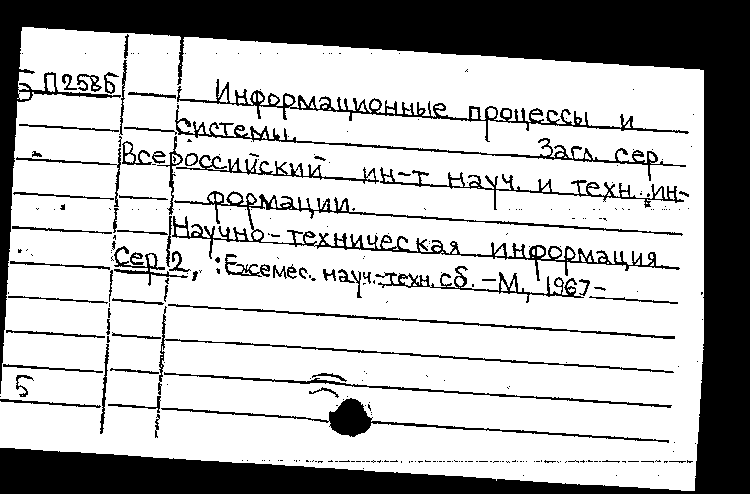 П258Б
Информационные процессы и
системы. Загл. сер.
Всероссийский ин-т науч. и техн. ин-
формации.
Научно-техническая информация
Сер 2, : Ежемес. науч.-техн. сб. - М., 1967-
5